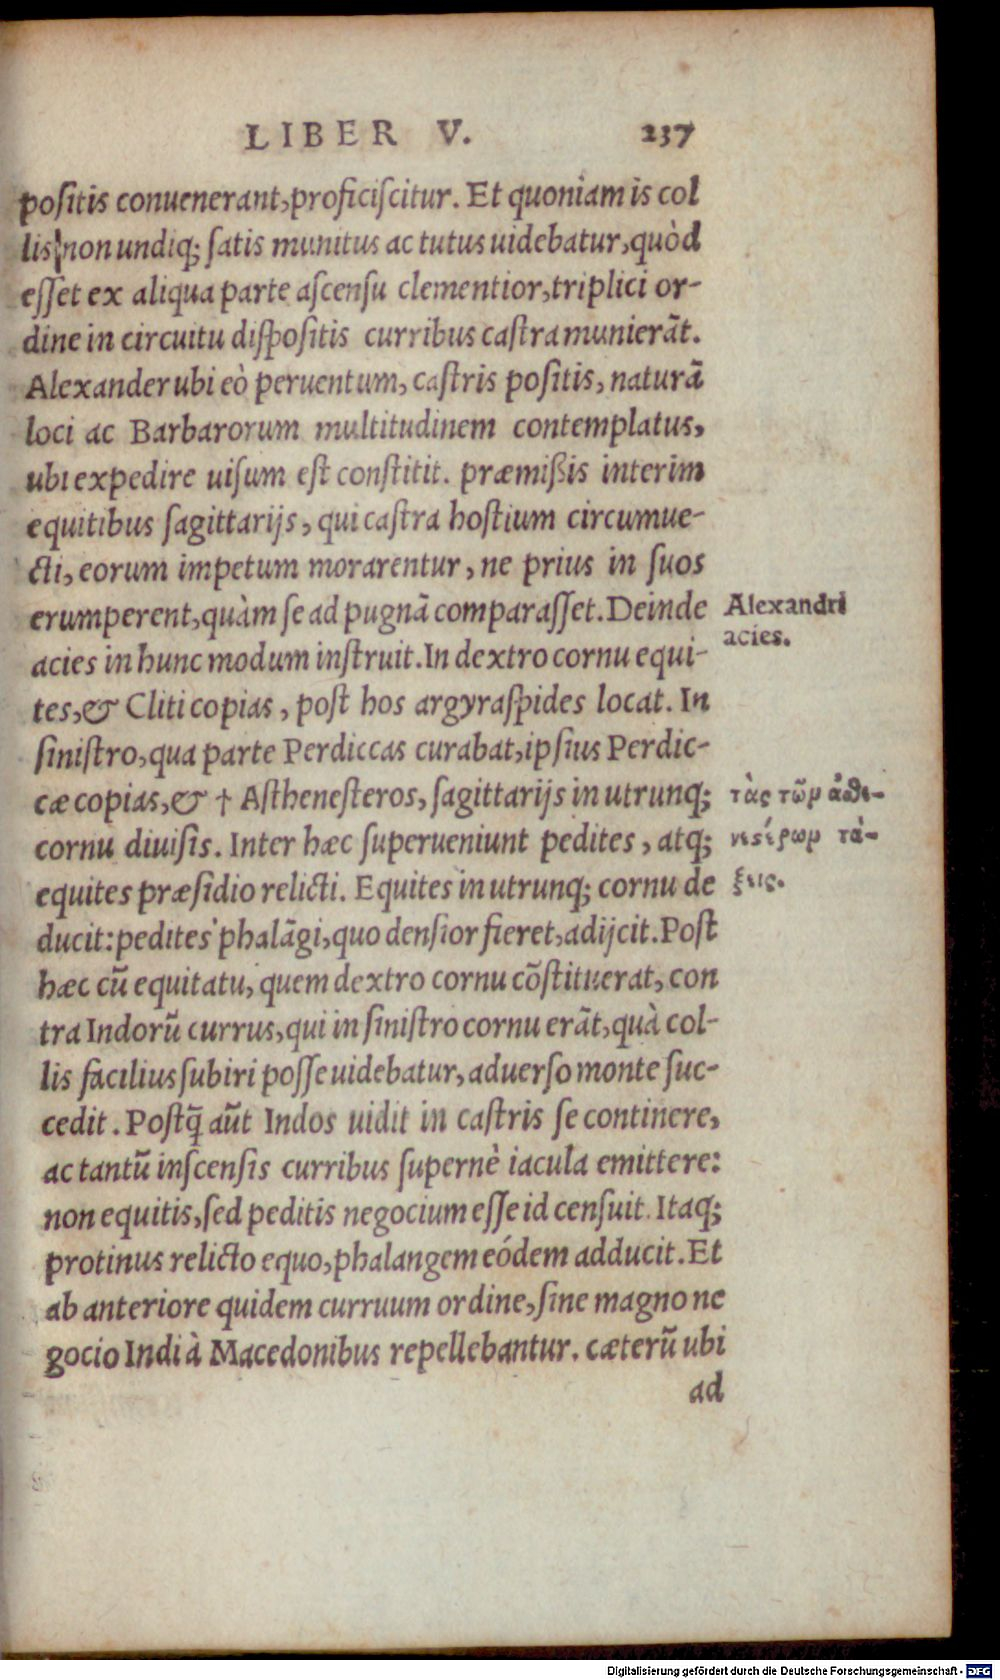 LIBER V. 237
positis conuenerant, proficiscitur. Et quoniam is col
lis non undiq; satis munitus ac tutus uidebatur, quòd
esset ex aliqua parte ascensu clementior, triplici or-
dine in circuitu dispositis curribus castra munierāt.
Alexander ubi eò peruentum, castris positis, naturā
loci ac Barbarorum multitudinem contemplatus,
ubi expedire uisum est constitit. præmißis interim
equitibus sagittarijs, qui castra hostium circumue-
cti, eorum impetum morarentur, ne prius in suos
erumperent, quàm se ad pugnā comparasset. Deinde
Alexandri
acies.
acies in hunc modum instruit. In dextro cornu equi-
tes, & Cliti copias, post hos argyraspides locat. In
sinistro, qua parte Perdiccas curabat, ipsius Perdic-
cæ copias, & † Asthenesteros, sagittarijs in utrunq;
τὰς τῶν ἀσθε-
cornu diuisis. Inter hæc superueniunt pedites, atq;
τά-
equites præsidio relicti. Equites in utrunq; cornu de
ξεις.
ducit: pedites phalāgi, quo densior fieret, adijcit. Post
hæc cū equitatu, quem dextro cornu cōstituerat, con
tra Indorū currus, qui in sinistro cornu erāt, quà col-
lis facilius subiri posse uidebatur, aduerso monte suc-
cedit. Postq̄ aūt Indos uidit in castris se continere,
ac tantū inscensis curribus supernè iacula emittere:
non equitis, sed peditis negocium esse id censuit. Itaq;
protinus relicto equo, phalangem eódem adducit. Et
ab anteriore quidem curruum ordine, sine magno ne
gocio Indi à Macedonibus repellebantur. cæterū ubi
ad
Digitalisierung gefördert durch die Deutsche Forschungsgemeinschaft - DFG